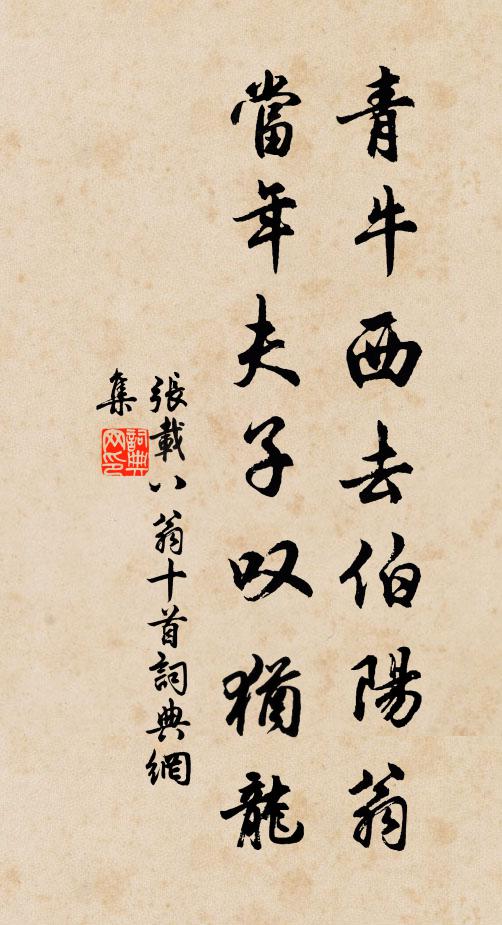 青牛西去伯陽翁
當年夫子叹猶龍
張載八翁十首詞典網
集
詞典
网印